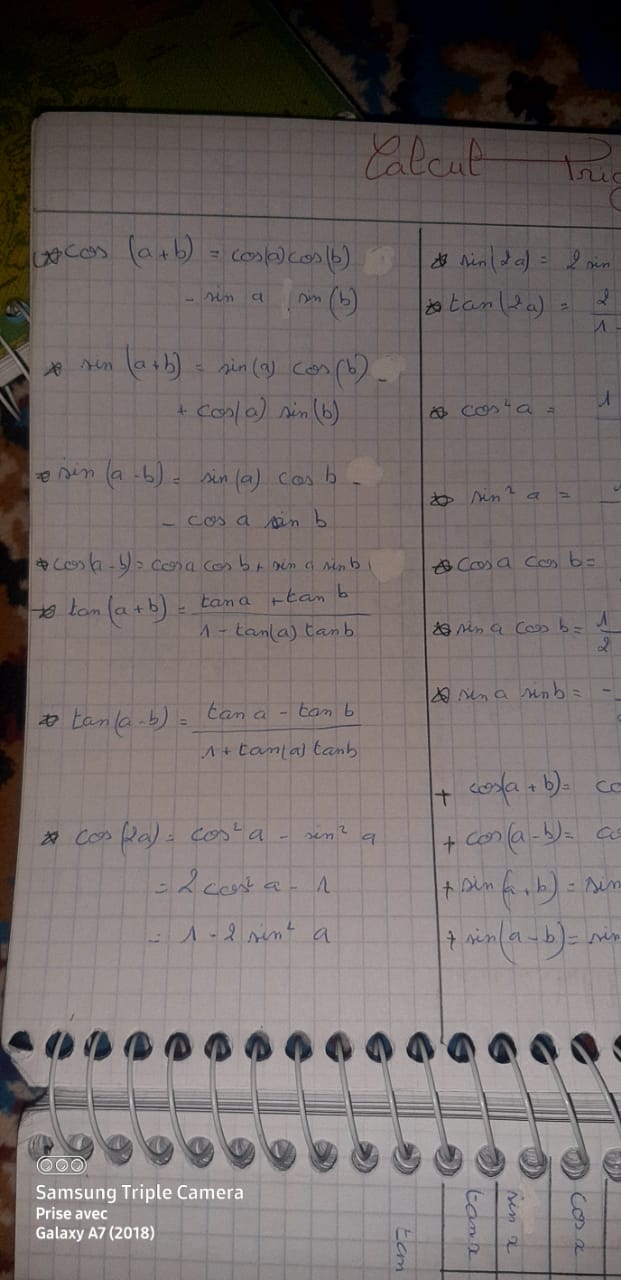 Calcul Trig
* cos (a+b) = cos(a) cos(b)
- sin a sin (b)
* sin (a+b) = sin(a) cos(b)
+ cos(a) sin(b)
* sin (a-b) = sin (a) cos b -
- cos a sin b
* cos(a-b) = cos a cos b + sin a sin b
* tan (a+b) = tan a + tan b
1 - tan(a) tan b
* tan(a-b) = tan a - tan b
1 + tan(a) tan b
* cos(2a) = cos² a - sin² a
= 2 cos² a - 1
= 1 - 2 sin² a
* sin(2a) = 2 sin
* tan(2a) = 2
1 -
* cos² a = 1
* sin² a =
* cos a cos b =
* sin a cos b = 1
2
* sin a sin b = -
+ cos(a + b) = co
+ cos(a - b) = co
+ sin(a + b) = sin
+ sin(a - b) = sin
tan
tan x
sin x
cos x
Samsung Triple Camera
Prise avec
Galaxy A7 (2018)